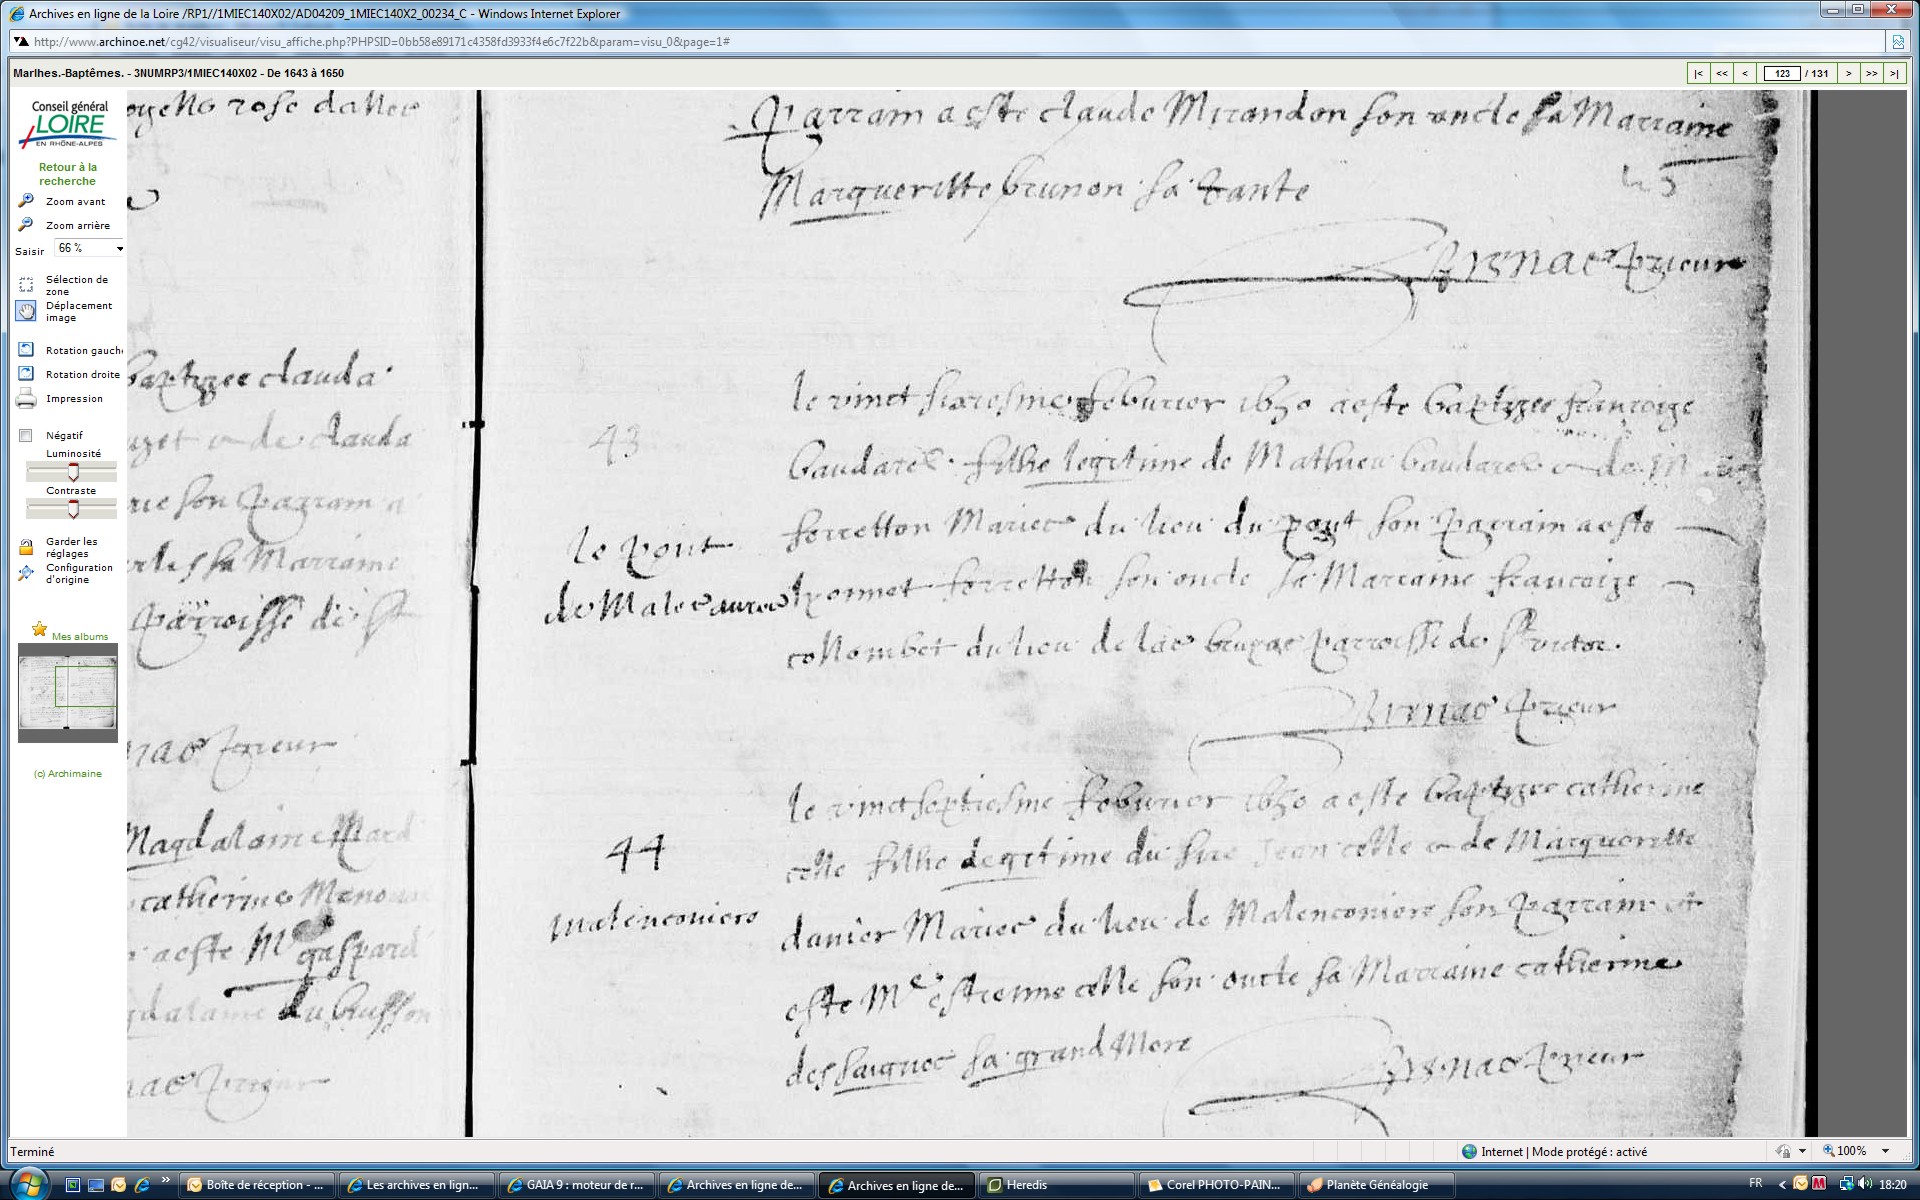 Archives en ligne de la Loire /RP1//1MIEC140X02/AD04209_1MIEC140X2_00234_C - Windows Internet Explorer
http://www.archinoe.net/cg42/visualiseur/visu_affiche.php?PHPSID=0bb58e89171c4358fd3933f4e6c7f22b&param=visu_0&page=1#
Marlhes.-Baptêmes. - 3NUMRP3/1MIEC140X02 - De 1643 à 1650
|< << < 123 / 131 > >> >|
Conseil général
LOIRE
EN RHÔNE-ALPES
Retour à la
recherche
Zoom avant
Zoom arrière
Saisir 66 %
Sélection de
zone
Déplacement
image
Rotation gauch
Rotation droite
Impression
Négatif
Luminosité
Contraste
Garder les
réglages
Configuration
d'origine
Mes albums
(c) Archimaine
rose
baptizee clauda
de clauda
son parrain a
sa Marraine
parroisse de st
prieur
Magdalaine
catherine
aeste Mre gaspard
du buisson
prieur
parrain a este claude Mirandon son oncle sa Marraine
Margueritte brunon sa tante
45
prieur
43
le pont
de Malecauree
le vinct sixiesme feburier 1650 aeste baptizee francoize
baudarel filhe legitime de Mathieu baudarel et de
forretton Mariee du lieu du pont son parrain aeste
lyonnet forretton son oncle sa Marraine francoize
collombet du lieu de lac bruyae parroisse de st victor.
prieur
44
malenconiere
le vinct septiesme feburier 1650 aeste baptizee catherine
celle filhe legitime du sire Jean celle et de Marguerette
danier Mariee du lieu de Malenconiere son parrain at
este Mre estienne celle son oncle sa Marraine catherine
dessaignes sa grand Mere
prieur
Terminé
Internet | Mode protégé : activé
100%
Boîte de réception - ...
Les archives en lign...
GAIA 9 : moteur de r...
Archives en ligne de...
Archives en ligne de...
Heredis
Corel PHOTO-PAIN...
Planète Généalogie
FR
18:20